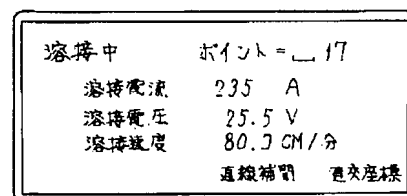 溶接中 ポイント=␣17
溶接電流 235 A
溶接電圧 25.5 V
溶接速度 80.0 CM/分
直線補間 直交座標